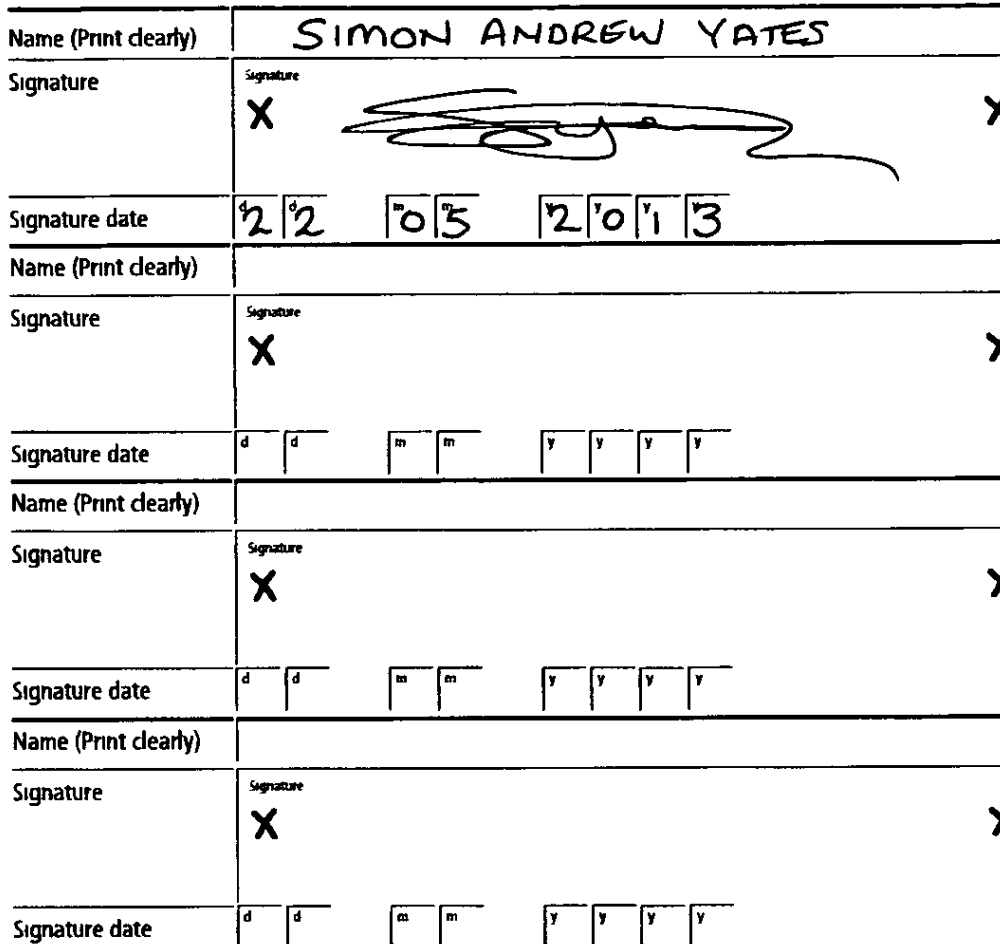 Name (Print clearly) SIMON ANDREW YATES
Signature Signature
X X
Signature date d d m m y y y y
22 05 2013
Name (Print clearly)
Signature Signature
X X
Signature date d d m m y y y y
Name (Print clearly)
Signature Signature
X X
Signature date d d m m y y y y
Name (Print clearly)
Signature Signature
X X
Signature date d d m m y y y y